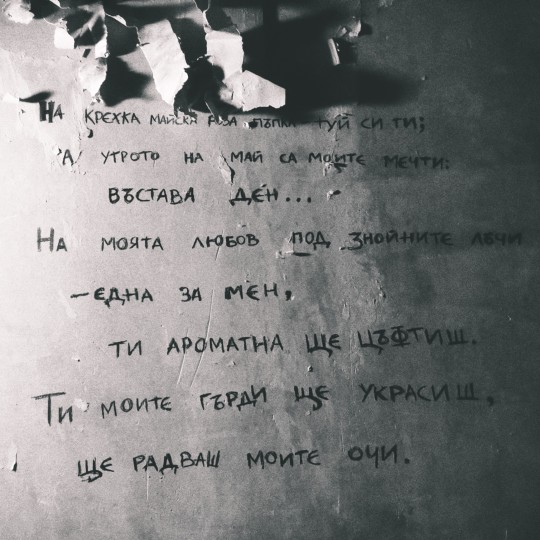 На крехка майска роза пъпка туй си ти;
А утрото на май са моите мечти:
въстава ден...
На моята любов под знойните лъчи
– една за мен,
ти ароматна ще цъфтиш.
Ти моите гърди ще украсиш,
ще радваш моите очи.